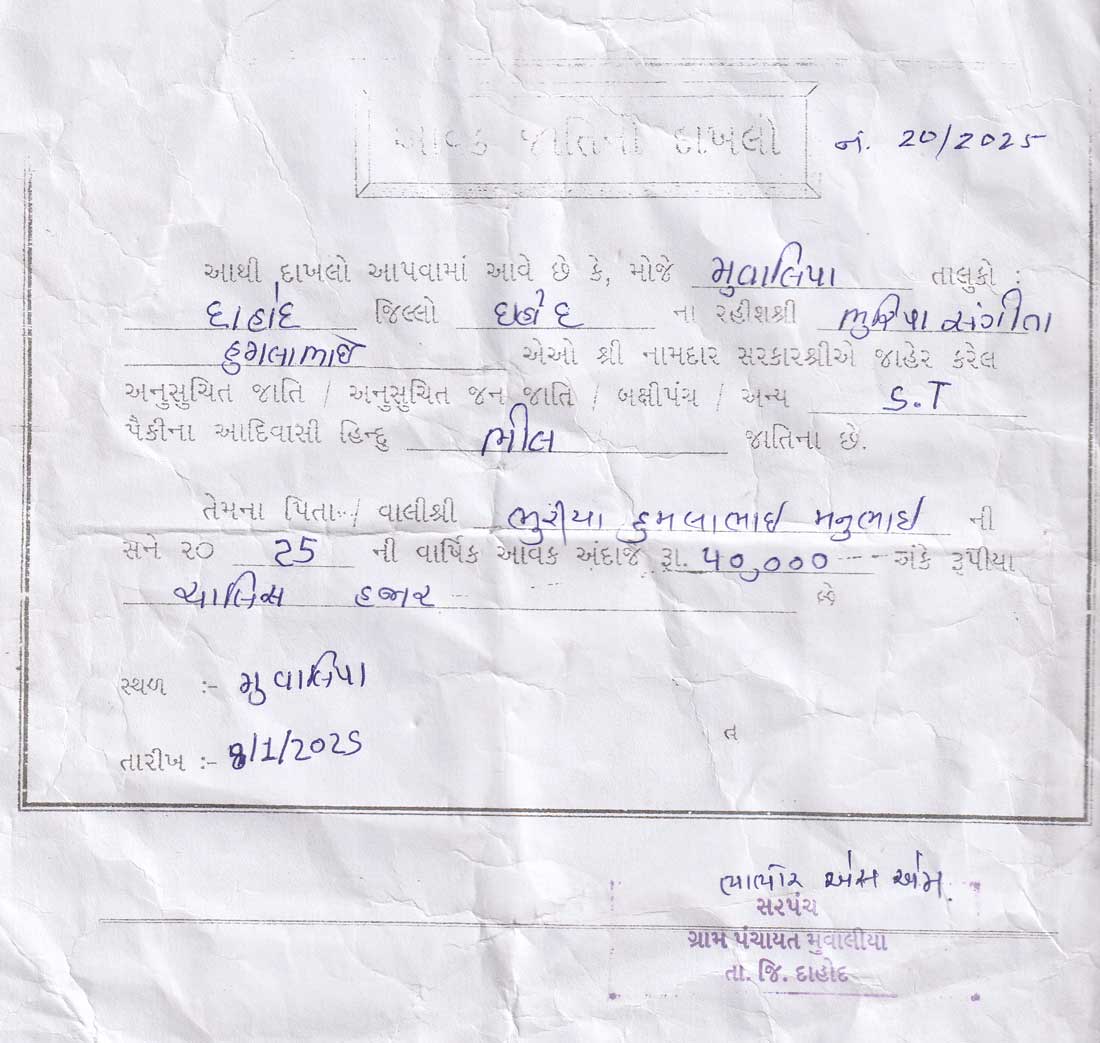 આવક જાતિનો દાખલો નં. 20/2025
આથી દાખલો આપવામાં આવે છે કે, મોજે મુવાલિયા તાલુકો :
દાહોદ જિલ્લો દાહોદ ના રહીશશ્રી ભુરિયા સંગીતા
હુમલાભાઇ એઓ શ્રી નામદાર સરકારશ્રીએ જાહેર કરેલ
અનુસુચિત જાતિ / અનુસુચિત જન જાતિ / બક્ષીપંચ / અન્ય S.T
પૈકીના આદિવાસી હિન્દુ ભીલ જાતિના છે.
તેમના પિતા:-/ વાલીશ્રી ભુરીયા હુમલાભાઇ મનુભાઇ ની
સને ૨૦ 25 ની વાર્ષિક આવક અંદાજે રૂા. ૪૦,૦૦૦ --- અંકે રૂપીયા
ચાલિસ હજાર -- છે
સ્થળ :- મુવાલિયા
ત
તારીખ :- 8/1/2025
ભાભોર એસ એમ.
સરપંચ
ગ્રામ પંચાયત મુવાલીયા
તા. જિ. દાહોદ